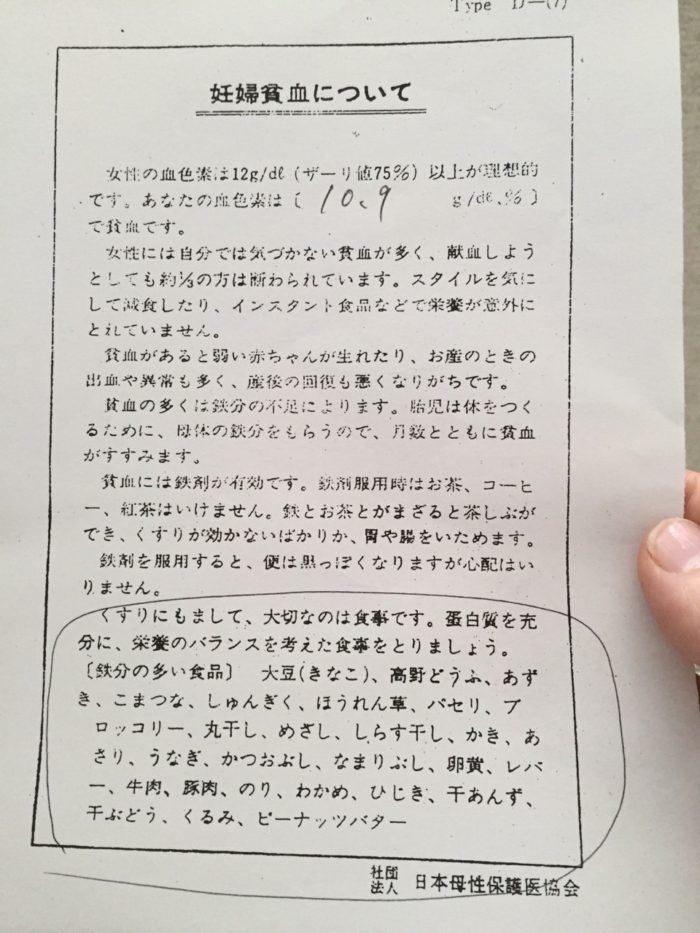 Type D—(7)
妊婦貧血について
女性の血色素は12g/dℓ（ザーリ値75%）以上が理想的
です。あなたの血色素は〔 10.9 g/dℓ、% 〕
で貧血です。
女性には自分では気づかない貧血が多く、献血しよう
としても約⅓の方は断わられています。スタイルを気に
して減食したり、インスタント食品などで栄養が意外に
とれていません。
貧血があると弱い赤ちゃんが生れたり、お産のときの
出血や異常も多く、産後の回復も悪くなりがちです。
貧血の多くは鉄分の不足によります。胎児は体をつく
るために、母体の鉄分をもらうので、月数とともに貧血
がすすみます。
貧血には鉄剤が有効です。鉄剤服用時はお茶、コーヒ
ー、紅茶はいけません。鉄とお茶とがまざると茶しぶが
でき、くすりが効かないばかりか、胃や腸をいためます。
鉄剤を服用すると、便は黒っぽくなりますが心配はい
りません。
くすりにもまして、大切なのは食事です。蛋白質を充
分に、栄養のバランスを考えた食事をとりましょう。
〔鉄分の多い食品〕 大豆(きなこ)、高野どうふ、あず
き、こまつな、しゅんぎく、ほうれん草、パセリ、ブ
ロッコリー、丸干し、めざし、しらす干し、かき、あ
さり、うなぎ、かつおぶし、なまりぶし、卵黄、レバ
ー、牛肉、豚肉、のり、わかめ、ひじき、干あんず、
干ぶどう、くるみ、ピーナッツバター
社団法人 日本母性保護医協会